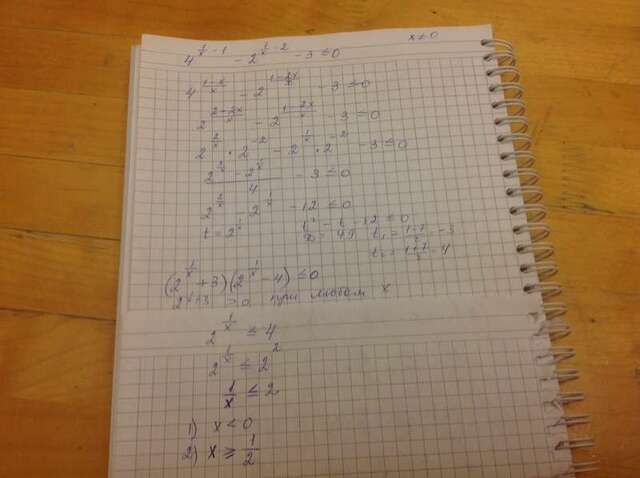 4^{1/x - 1} - 2^{1/x - 2} - 3 ≤ 0   x ≠ 0
4^{(1-x)/x} - 2^{(1-2x)/x} - 3 ≤ 0
2^{(2-2x)/x} - 2^{(1-2x)/x} - 3 ≤ 0
2^{2/x} · 2^{-2} - 2^{1/x} · 2^{-2} - 3 ≤ 0
(2^{2/x} - 2^{1/x})/4 - 3 ≤ 0
2^{2/x} 2^{1/x} - 12 ≤ 0
t = 2^{1/x}   t² - t - 12 ≤ 0
D = 49   t₁ = (1-7)/2 = -3
t₂ = (1+7)/2 = 4
(2^{1/x} + 3)(2^{1/x} - 4) ≤ 0
2^{1/x} + 3 > 0 при любом x
2^{1/x} ≤ 4
2^{1/x} ≤ 2²
1/x ≤ 2
1) x < 0
2) x ≥ 1/2